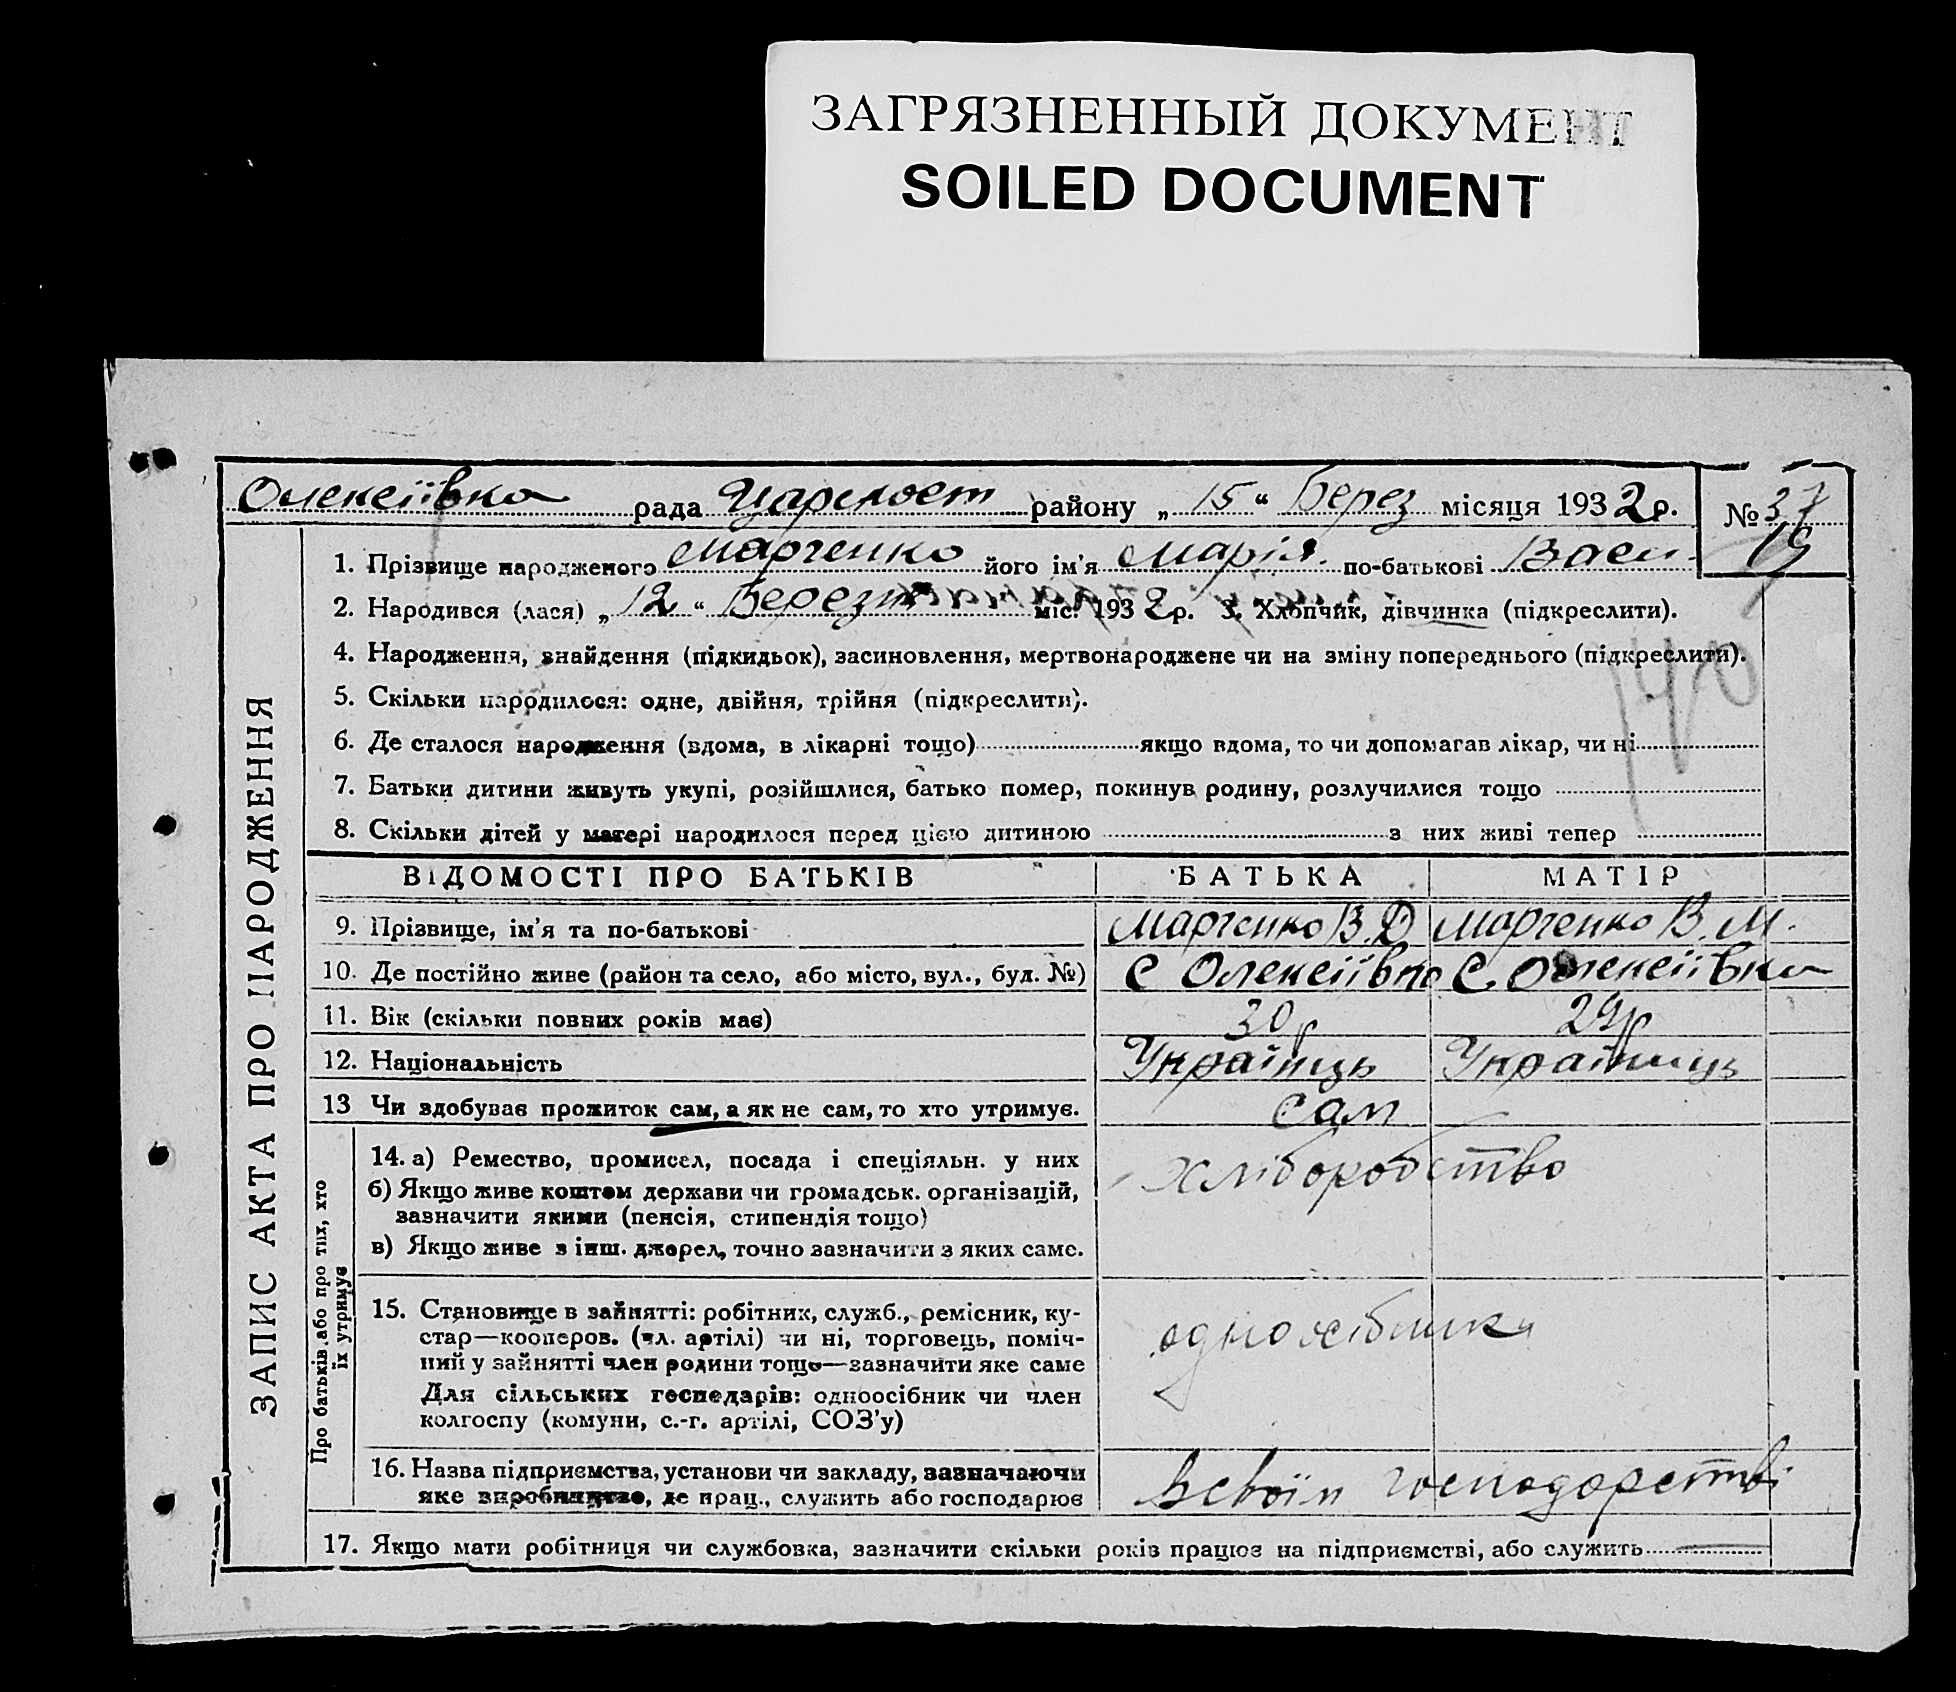 ЗАГРЯЗНЕННЫЙ ДОКУМЕНТ
SOILED DOCUMENT
Олексіївка рада район у „ 15 “ Берез місяця 1932 р. № 37
19
1. Прізвище народженого Марченко його ім'я Марія по-батькові Васи
2. Народився (лася) „ 12 “ Березня міс. 1932 р. 3. Хлопчик, дівчинка (підкреслити).
4. Народження, знайдення (підкидьок), засиновлення, мертвонароджене чи на зміну попереднього (підкреслити).
140
5. Скільки народилося: одне, двійня, трійня (підкреслити).
6. Де сталося народження (вдома, в лікарні тощо) якщо вдома, то чи допомагав лікар, чи ні
7. Батьки дитини живуть укупі, розійшлися, батько помер, покинув родину, розлучилися тощо
8. Скільки дітей у матері народилося перед цією дитиною з них живі тепер
ЗАПИС АКТА ПРО НАРОДЖЕННЯ
ВІДОМОСТІ ПРО БАТЬКІВ БАТЬКА МАТІР
9. Прізвище, ім'я та по-батькові Марченко В. Д Марченко В. М.
10. Де постійно живе (район та село, або місто, вул., буд. №) С Олексіївка С Олексіївка
11. Вік (скільки повних років має) 30 р 29 р
12. Національність Українць Українць
13 Чи здобуває прожиток сам, а як не сам, то хто утримує. сам
Про батьків або про тих, хто
їх утримує
14. а) Ремество, промисел, посада і спеціяльн. у них хліборобство
б) Якщо живе коштом держави чи громадськ. організацій,
зазначити якими (пенсія, стипендія тощо)
в) Якщо живе з інш. джерел, точно зазначити з яких саме.
15. Становище в зайнятті: робітник, служб., ремісник, ку-
стар—кооперов. (чл. артілі) чи ні, торговець, поміч- одноосібники
ний у зайнятті член родини тощо—зазначити яке саме
Для сільських господарів: одноосібник чи член
колгоспу (комуни, с.-г. артілі, СОЗ'у)
16. Назва підприємства, установи чи закладу, зазначаючи
яке виробництво, де прац., служить або господарює в своїм господарстві
17. Якщо мати робітниця чи службовка, зазначити скільки років працює на підприємстві, або служить